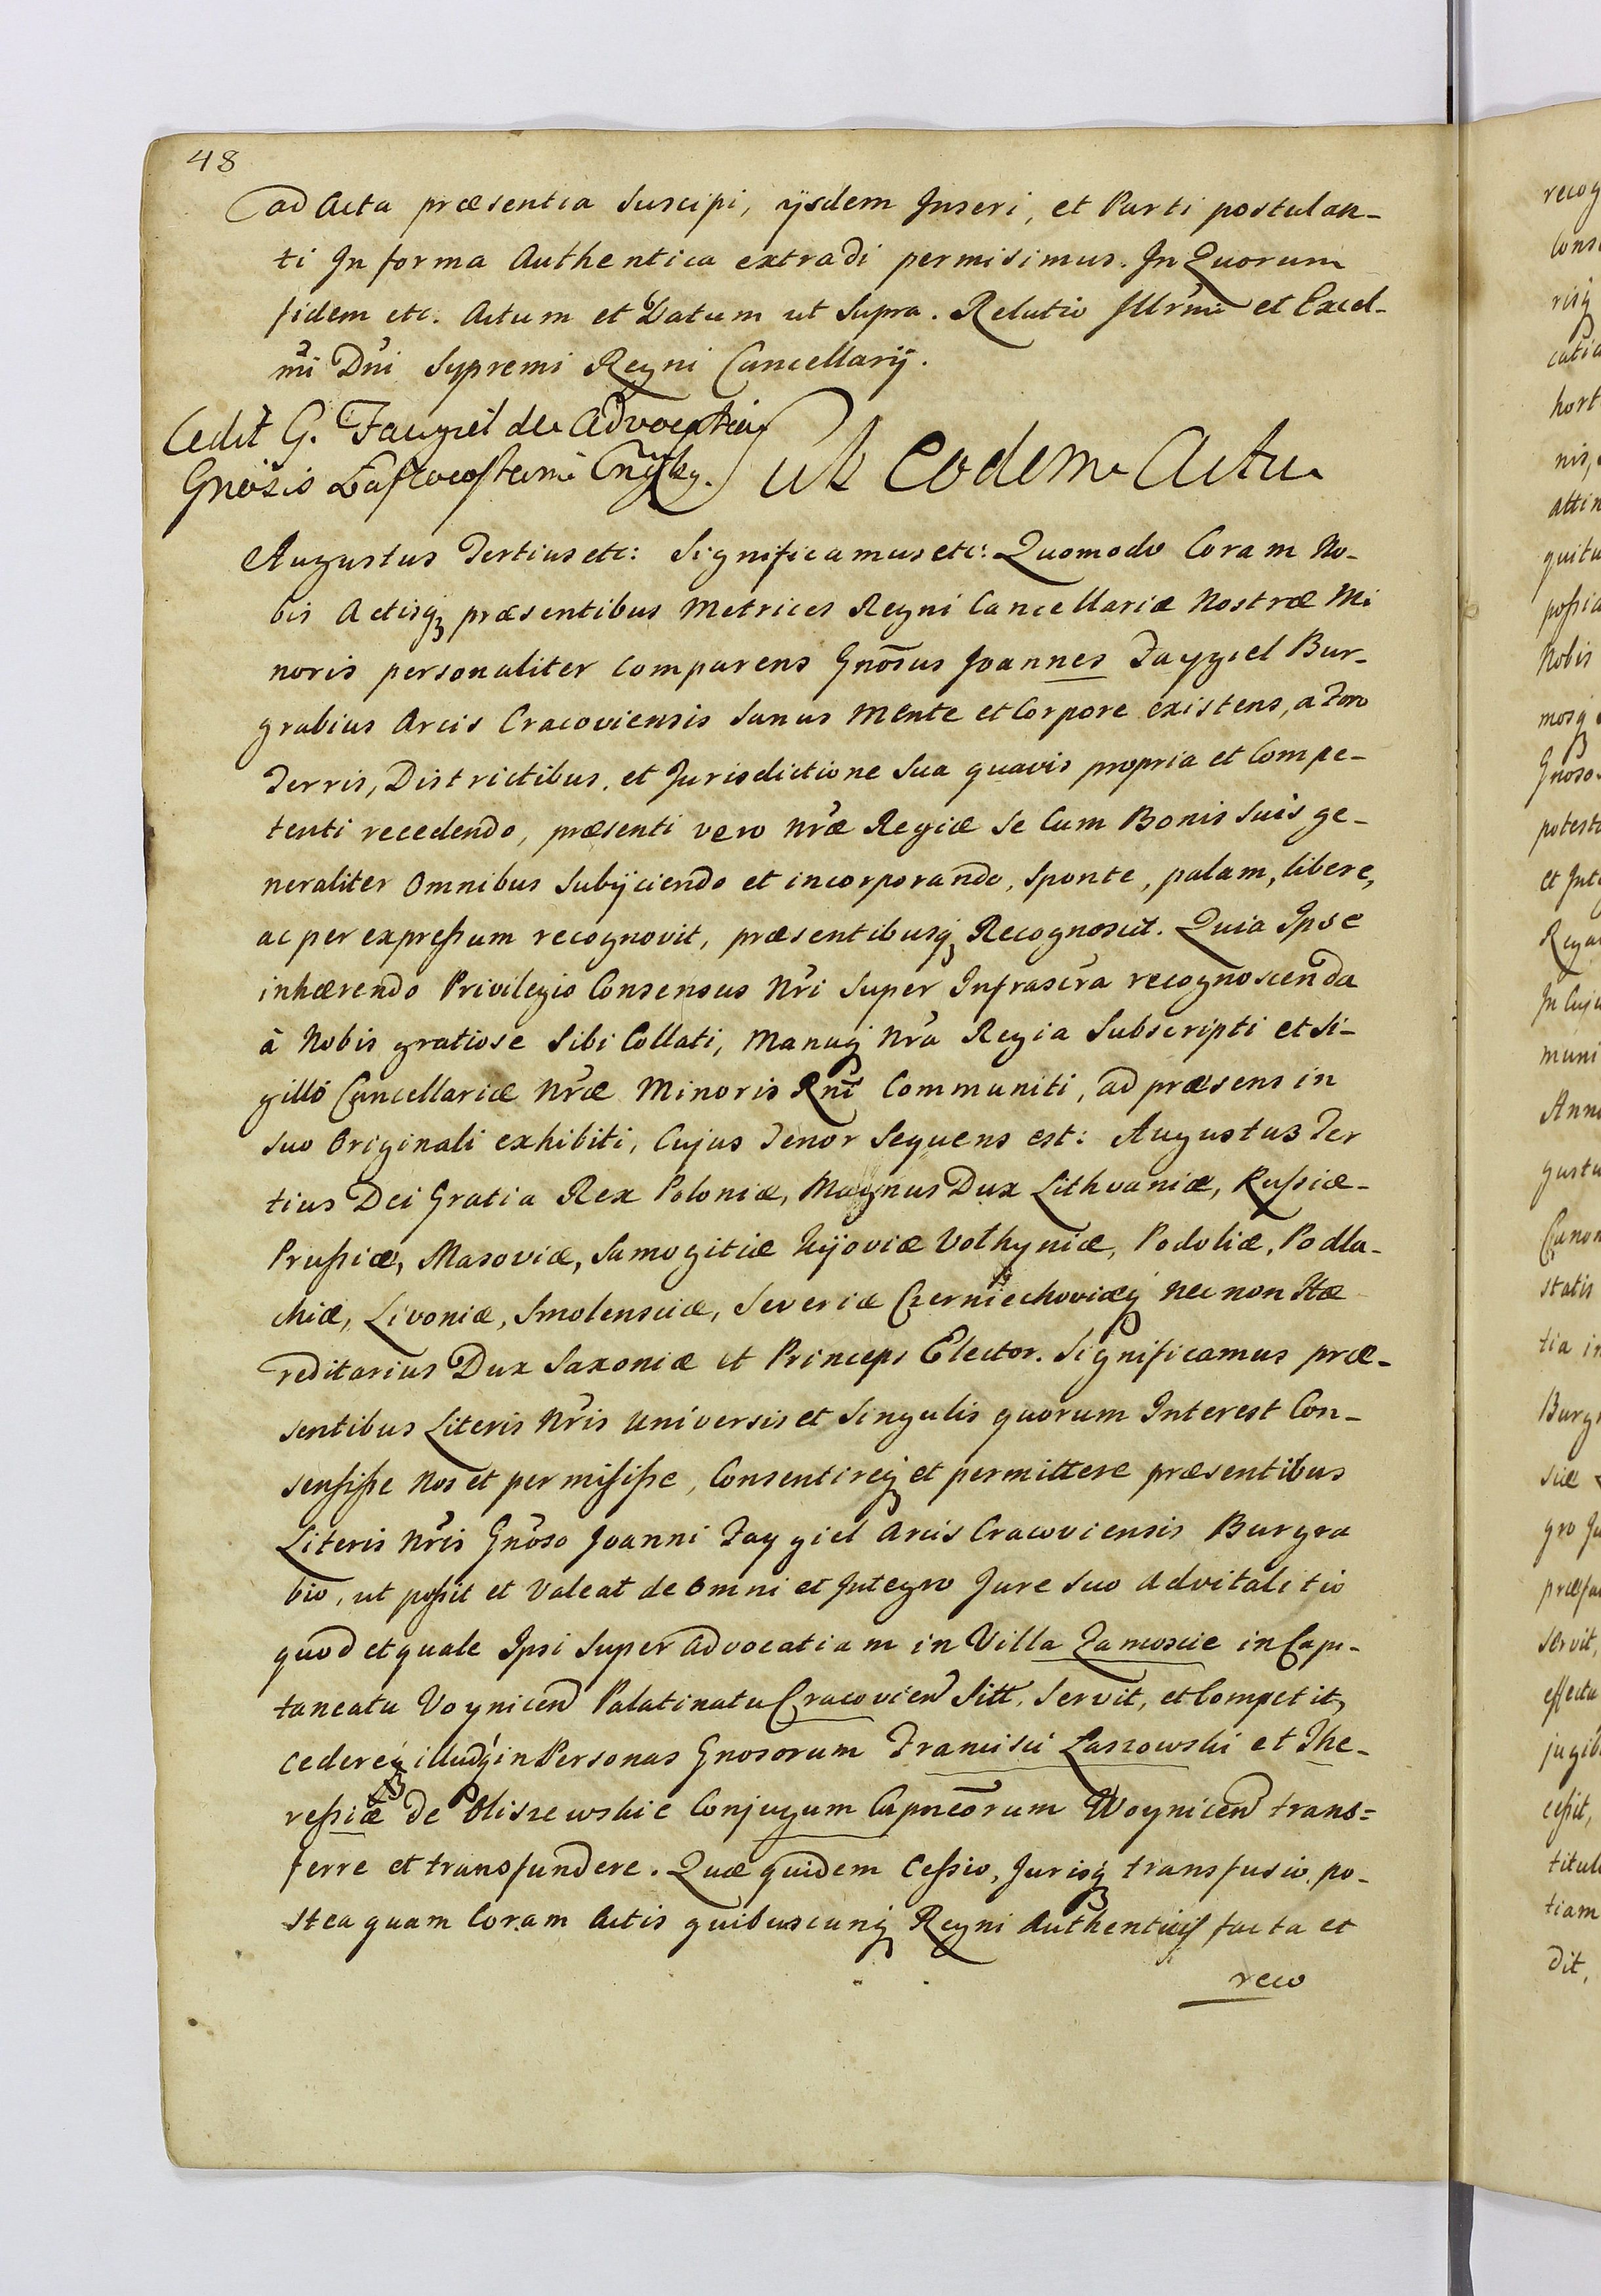 48
ad Acta præsentia Suscipi, ijsdem Inseri, et Parti postulan-
ti In forma Authentica extradi permisimus. In Quorum
fidem etc. Actum et Datum ut Supra. Relatio Illrmi et Excel-
mi Dni Supremi Regni Cancellarij.
Cedit G. Faygiel de Advocatia
Gnosis
Ut Eodem Actu
Augustus Tertius etc: Significamus etc: Quomodo Coram No-
bis Actisq præsentibus Metrices Regni Cancellariæ Nostræ Mi
noris personaliter Comparens Gnosus Joannes Faygiel Bur-
grabius Arcis Cracoviensis Sanus Mente et Corpore existens, a
Terris, Districtibus, et Jurisdictione Sua quavis propria et Compe-
tenti recedendo, præsenti vero nræ Regiæ Se Cum Bonis Suis ge-
neraliter Omnibus Subijciendo et incorporando, Sponte, palam, libere,
ac per expressum recognovit, præsentibusq Recognoscit. Quia Ipse
inhærendo Privilegio Consensus Nri Super Infrascra recognoscenda
à Nobis gratiose Sibi Collati, Manuq Nra Regia Subscripti et Si-
gillô Cancellariæ Nræ Minoris Rni Communiti, ad præsens in
Suo Originali exhibiti, Cujus Tenor Sequens est: Augustus Ter
tius Dei Gratia Rex Poloniæ, Magnus Dux Lithvaniæ, Russiæ-
Prussiæ, Masoviæ, Samogitiæ Kijoviæ Volhyniæ, Podoliæ, Podla-
chiæ, Livoniæ, Smolensciæ, Severiæ Czerniechoviæq nec non Hæ
reditarius Dux Saxoniæ et Princeps Elector. Significamus præ-
sentibus Literis Nris Universis et Singulis quorum Interest Con-
sensisse Nos et permisisse, Consentireq et permittere præsentibus
Literis Nris Gnoso Joanni Faygiel Arcis Cracoviensis Burgra
bio, ut possit et Valeat de Omni et Integro Jure Suo Advitalitio
quod et quale Ipsi Super Advocatiam in Villa Zamoscie in Capi-
taneatu Voynicen Palatinatu Cracovien Sitt, Servit, et Competit,
cedereq illudq in Personas Gnosorum Francisci Laszowski et The-
ressiæ de Oliszewskie Conjugum Capneorum Woynicen trans=
ferre et transfundere. Quæ quidem Cessio, Jurisq transfusio, po-
stea quam Coram Actis quibuscunq Regni Authenticis facta et
reco